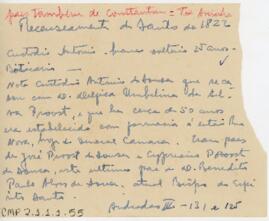 pay tambem de Constantin - Teo
Recenseamento de Santos de 1822
Custodio Antonio, branco solteiro 25 anos.
Boticario -
Nota Custodio Antonio de Sousa que se ca
sou com D. Delfica Umbelina da Sil
va Proost, e que ha cerca de 50 anos
era estabelecido com farmacia á rua
Nova, hoje do General Camara. Eram paes
de José Proost de Sousa e Cypriano Proost
de Sousa, este ultimo pae de D. Benedito
Paulo Alves de Sousa, atual Bispo do Espi
rito Santo.
Andradas III - 131 e 125
CMP 2.1.1.1.55